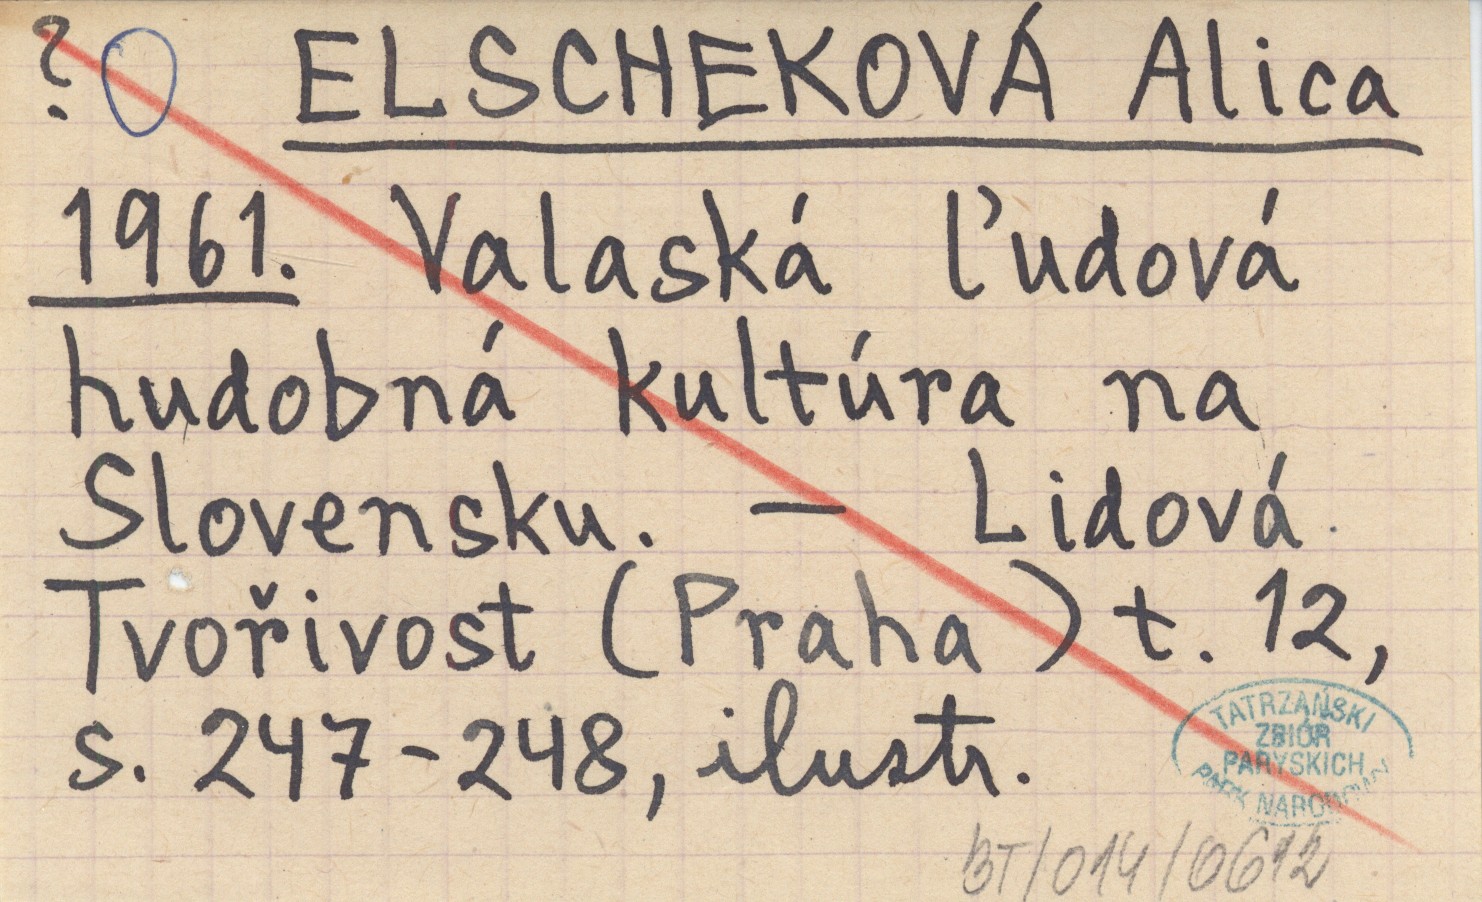 ? ELSCHEKOVÁ Alica
1961. Valaská ľudová
hudobná kultúra na
Slovensku. — Lidová
Tvořivost (Praha) t. 12,
s. 247-248, ilustr.
TATRZAŃSKI
ZBIÓR
PARYSKICH
PARK NARODOWY
BT/014/0612